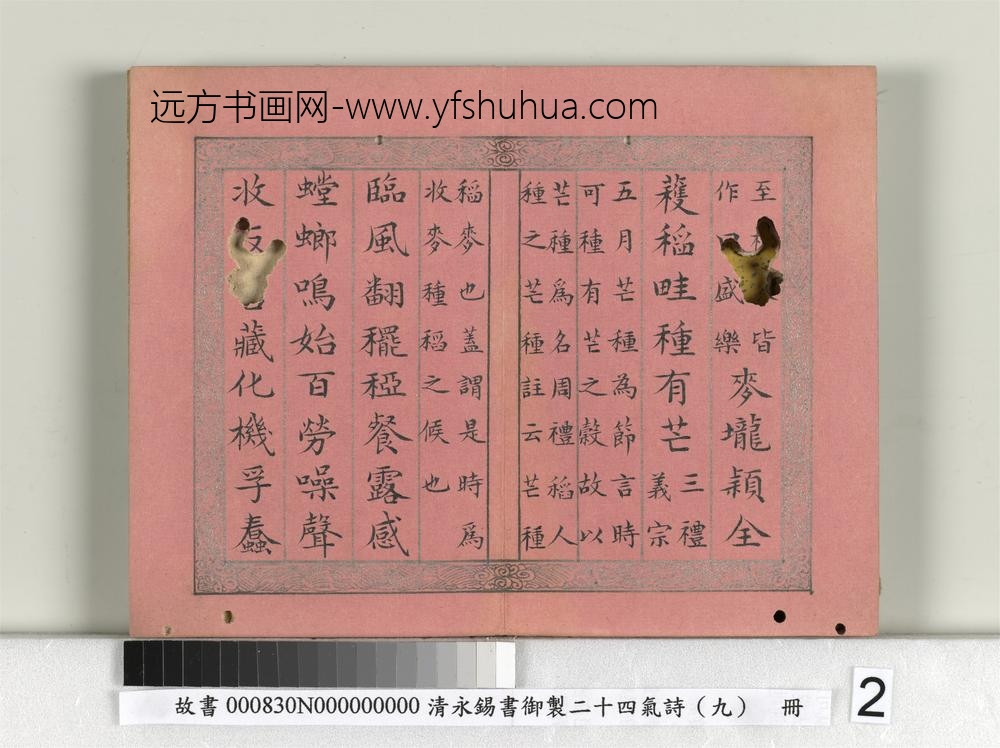 远方书画网-www.yfshuhua.com
至皆
作盛樂
麥壠穎全
穫稻畦種有芒
三禮
義宗
五月芒種為節言時
可種有芒之穀故以
芒種爲名周禮稻人
種之芒種註云芒種
稻麥也蓋謂是時爲
收麥種稻之候也
臨風翻穲稏餐露感
螳螂鳴始百勞噪聲
收藏化機孚蠢
故書 000830N000000000 清永錫書御製二十四氣詩（九） 冊
2